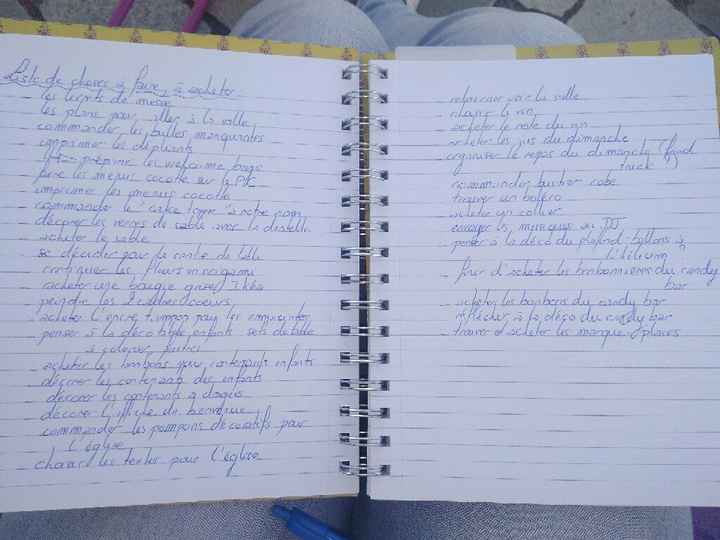 Liste de choses à faire, à acheter
_ les livrets de messe
_ les plans pour aller à la salle
_ commander les bulles manquantes
_ imprimer les dépliants
_ préparer les welcome bags
_ faire les menus cocotte sur le PC
_ imprimer les menus cocotte
_ commander le "cake topper" à notre nom
_ décorer les verres de sable avec la dentelle
_ acheter le sable
_ décider pour la de table
_ continuer les fleurs en origami
_ acheter une bougie Ikea
_ peindre les 2 coeurs
_ acheter l'encre tampon pour les empreintes
_ penser à la déco table enfants sets de table
à colorier,
_ acheter les bonbons pour contenants enfants
_ décorer les contenants des enfants
_ décorer les contenants à dragées
_ décorer l'affiche de bienvenue
_ commander les pompons décoratifs pour
l'église
_ choisir les textes pour l'église
_ repasser voir la salle
_ le vin
_ acheter le reste du vin
_ acheter les jus du dimanche
_ organiser le repas du dimanche (food
truck)
_ commander bustier robe
_ trouver un boléro
_ acheter un collier
_ envoyer les musiques au DJ
_ penser à la déco du plafond : ballons à
l'hélium
_ finir d'acheter les bonbonnières du candy
bar
_ acheter les bonbons du candy bar
_ réfléchir à la déco du candy bar
_ trouver et acheter les marque-places